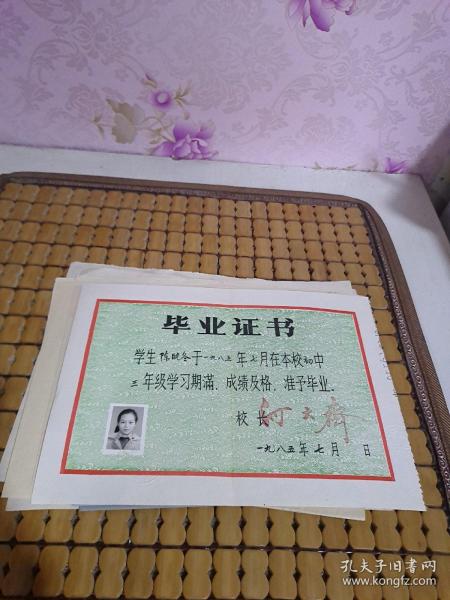 毕业证书
学生陈晓冬于一九八五年七月在本校初中
三年级学习期满、成绩及格，准予毕业。
校长
一九八五年七月 日
孔夫子旧书网
www.kongfz.com